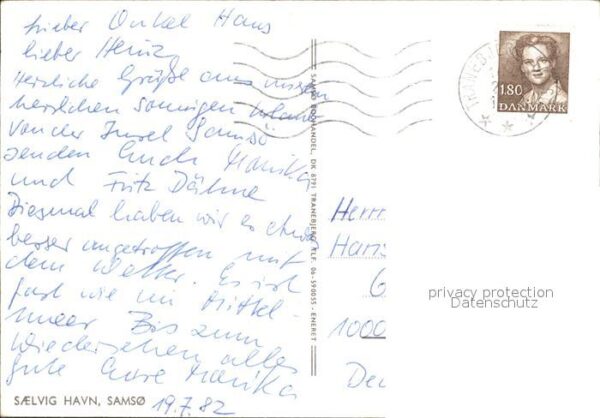 Lieber Onkel Hans
lieber Heinz
Herzliche Grüße aus unserem
herrlichen sonnigen Urlaub
von der Insel Samsö
senden Euch Marika
und Fritz Dähne
Diesmal haben wir es etwas
besser angetroffen mit
dem Wetter. Es ist
fast wie im Mittel-
meer Bis zum
Wiedersehen alles
gute Eure Marika
SÆLVIG HAVN, SAMSØ
19.7.82
SAMSØ BOGHANDEL, DK 8791 TRANEBJERG TLF. 06-590055 - ENERET
TRANEBJ
180
DANMARK
Herrn
Hans
G
1000
Deu
privacy protection
Datenschutz